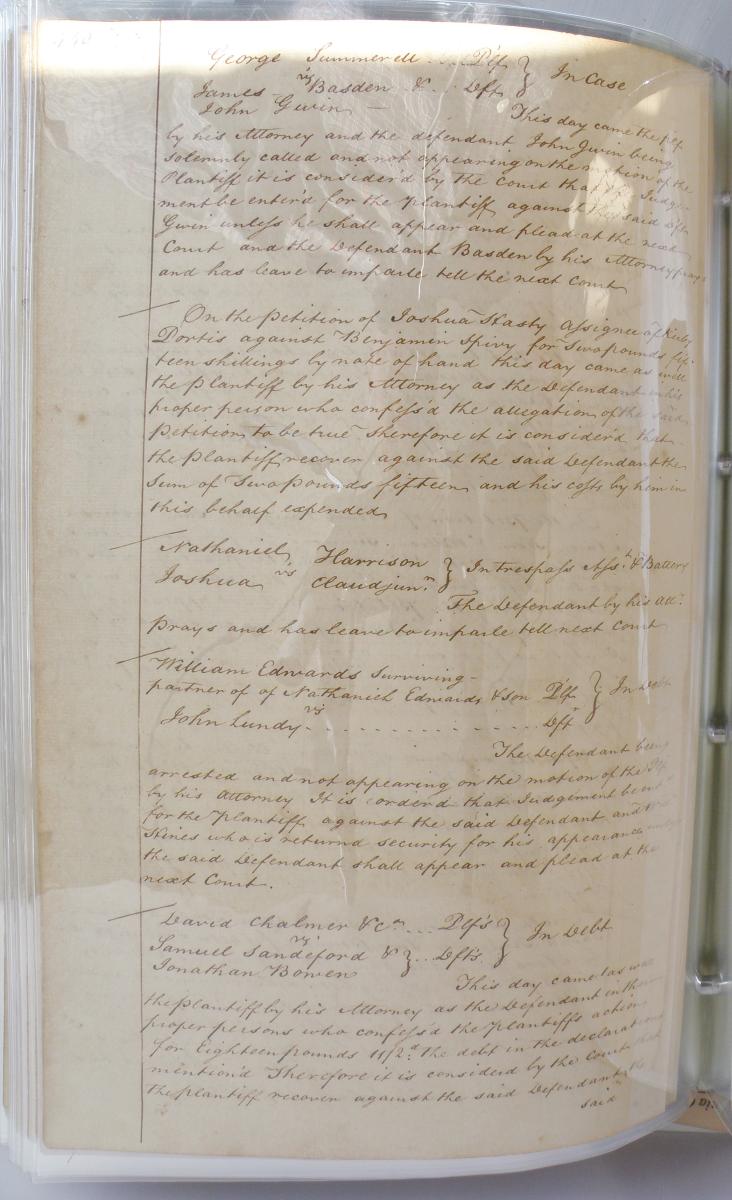 George Summerell .. Plf } In Case
vs
James Basden & .. Dfts
John Gwin —
This day came the plf
by his Attorney and the defendant John Gwin being
solemnly called and not appearing on the motion of the
Plantiff it is consider'd by the Court that Judge-
ment be enter'd for the Plantiff against the said Dft
Gwin unless he shall appear and plead at the next
Court and the Defendant Basden by his Attorney prays
and has leave to imparle tell the next Court
On the petition of Joshua Hasty Assignee of Kirby
Portis against Benjamin Spivy for Two pounds fif-
teen shillings by note of hand this day came as well
the Plantiff by his Attorney as the Defendant in his
proper person who confess'd the allegation of the said
Petition to be true therefore it is consider'd that
the Plantiff recover against the said Defendant the
Sum of Two Pounds fifteen and his costs by him in
this behalf expended
Nathaniel Harrison } In trespass Asst. & Battery
vs
Joshua Claud junr.
The Defendant by his Att.
Prays and has leave to imparle tell next Court
William Edwards Surviving-
partner of of Nathaniel Edwards & son Plf } In Debt
vs
John Lundy - . . . . . . . . . . . . Dft
The Defendant being
arrested and not appearing on the motion of the Plf
by his Attorney It is order'd that Judgement be
for the Plantiff against the said Defendant and
Hines who is returnd security for his appearance
the said Defendant shall appear and plead at the
next Court.
David Chalmer & Co. ... Plfs } In Debt
vs
Samuel Sandeford & } .. Dfts
Jonathan Bowen
This day came as well
the plantiff by his Attorney as the Defendant in their
proper persons who confess'd the Plantiffs action
for Eighteen pounds 11/2d. the debt in the declaration
mention'd Therefore it is considerd by the Court that
the plantiff recover against the said Defendants the
said